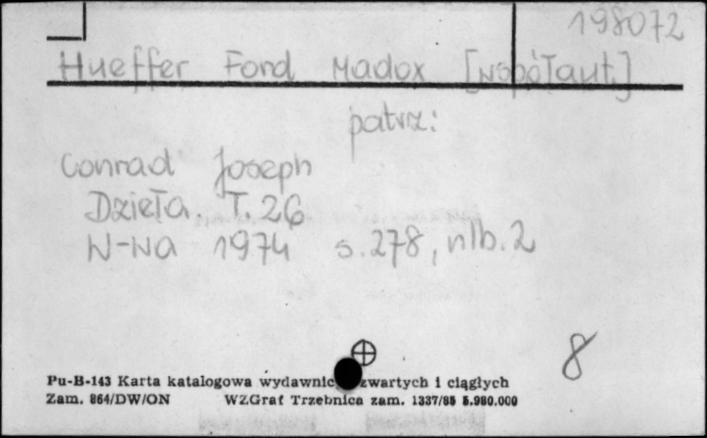 198072
Hueffer Ford Madox [współaut.]
patrz:
Conrad Joseph
Dzieła. T. 26
W-wa 1974 s. 278, nlb. 2
8
Pu-B-143 Karta katalogowa wydawnic zwartych i ciągłych
Zam. 864/DW/ON WZGraf Trzebnica zam. 1337/85 5.980.000